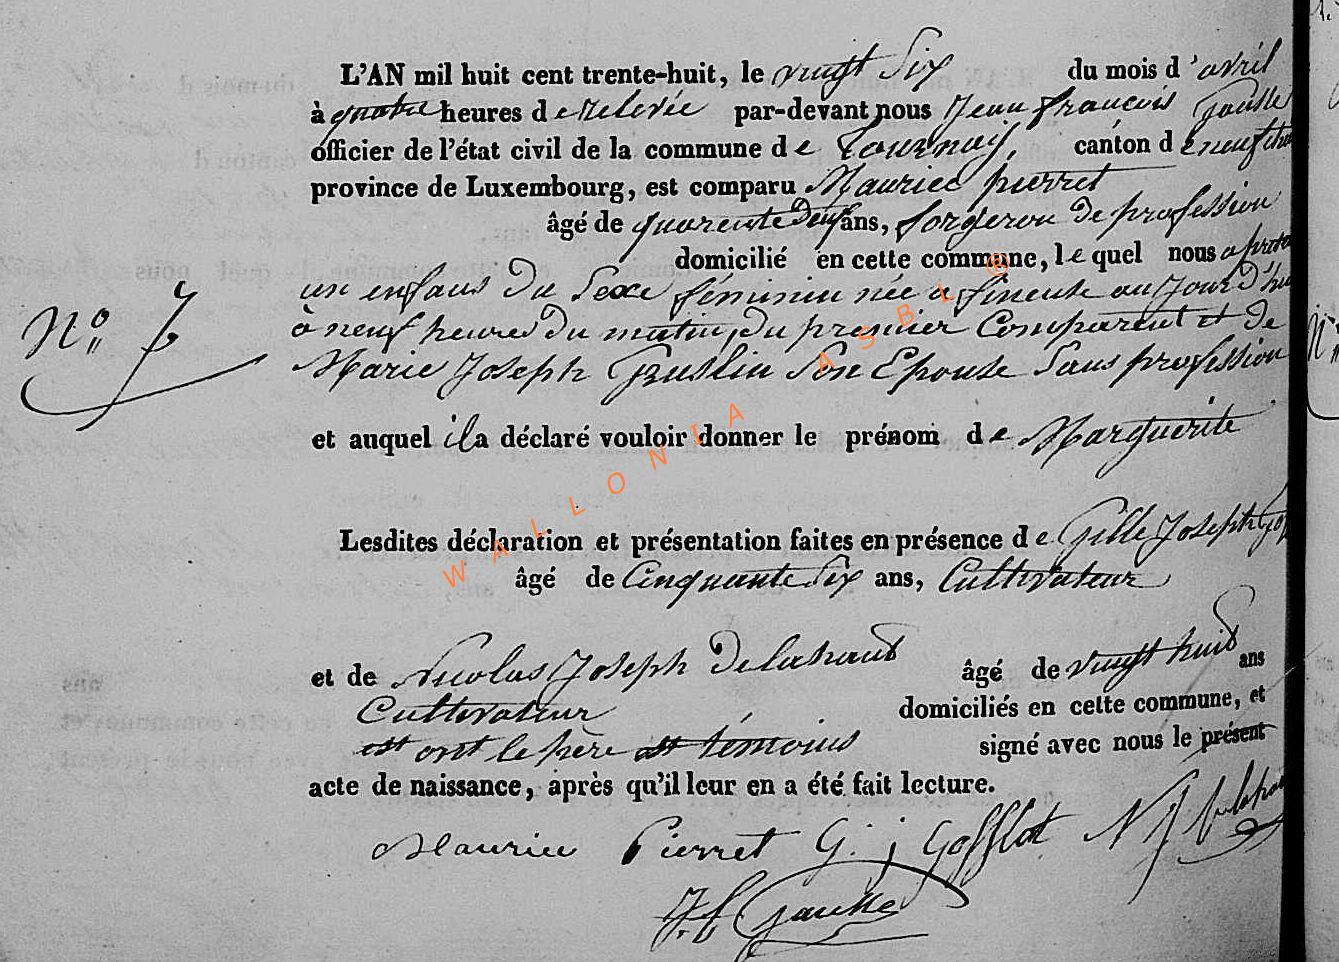 L'AN mil huit cent trente-huit, le vingt Six du mois d'avril
à quatre heures de relevée par-devant nous Jean françois Gausse
officier de l'état civil de la commune de Tournay, canton de neufcha
province de Luxembourg, est comparu Maurice pierret
âgé de quarente deux ans, forgeron de profession
domicilié en cette commune, le quel nous a
un enfans du Sexe féminin née a fineuse au Jour d'hu
N° 7
à neuf heures du matin, du premier Comparent et de
Marie Joseph Guslin Son Epouse Sans profession
et auquel il a déclaré vouloir donner le prénom de Marguerite
Lesdites déclaration et présentation faites en présence de Gille Joseph Gof
âgé de Cinquante Six ans, Cultivateur
et de Nicolas Joseph Delahaut âgé de vingt huit ans
Cultivateur domiciliés en cette commune, et
ont le père et témoins signé avec nous le présent
acte de naissance, après qu'il leur en a été fait lecture.
Maurice Pierret G. j Gofflot N J
J. f Gausse
WALLONIA ASBL ®